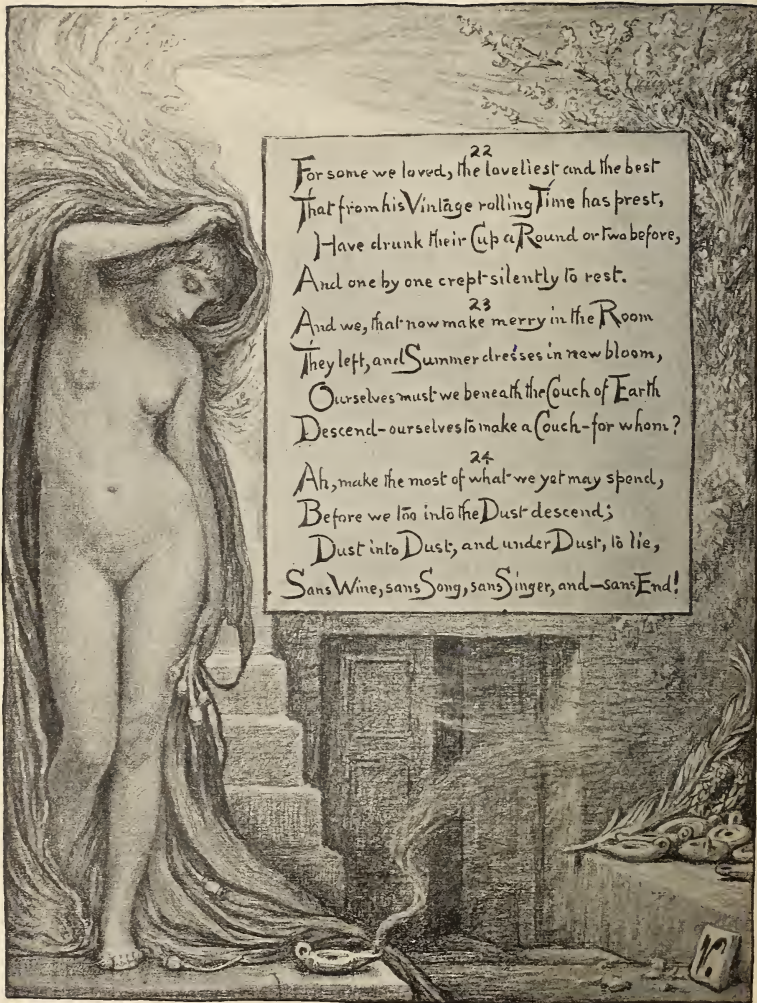 22
For some we loved, the loveliest and the best
That from his Vintage rolling Time has prest,
Have drunk their Cup a Round or two before,
And one by one crept silently to rest.
23
And we, that now make merry in the Room
They left, and Summer dresses in new bloom,
Ourselves must we beneath the Couch of Earth
Descend-ourselves to make a Couch-for whom?
24
Ah, make the most of what we yet may spend,
Before we too into the Dust descend;
Dust into Dust, and under Dust, to lie,
Sans Wine, sans Song, sans Singer, and—sans End!
V.